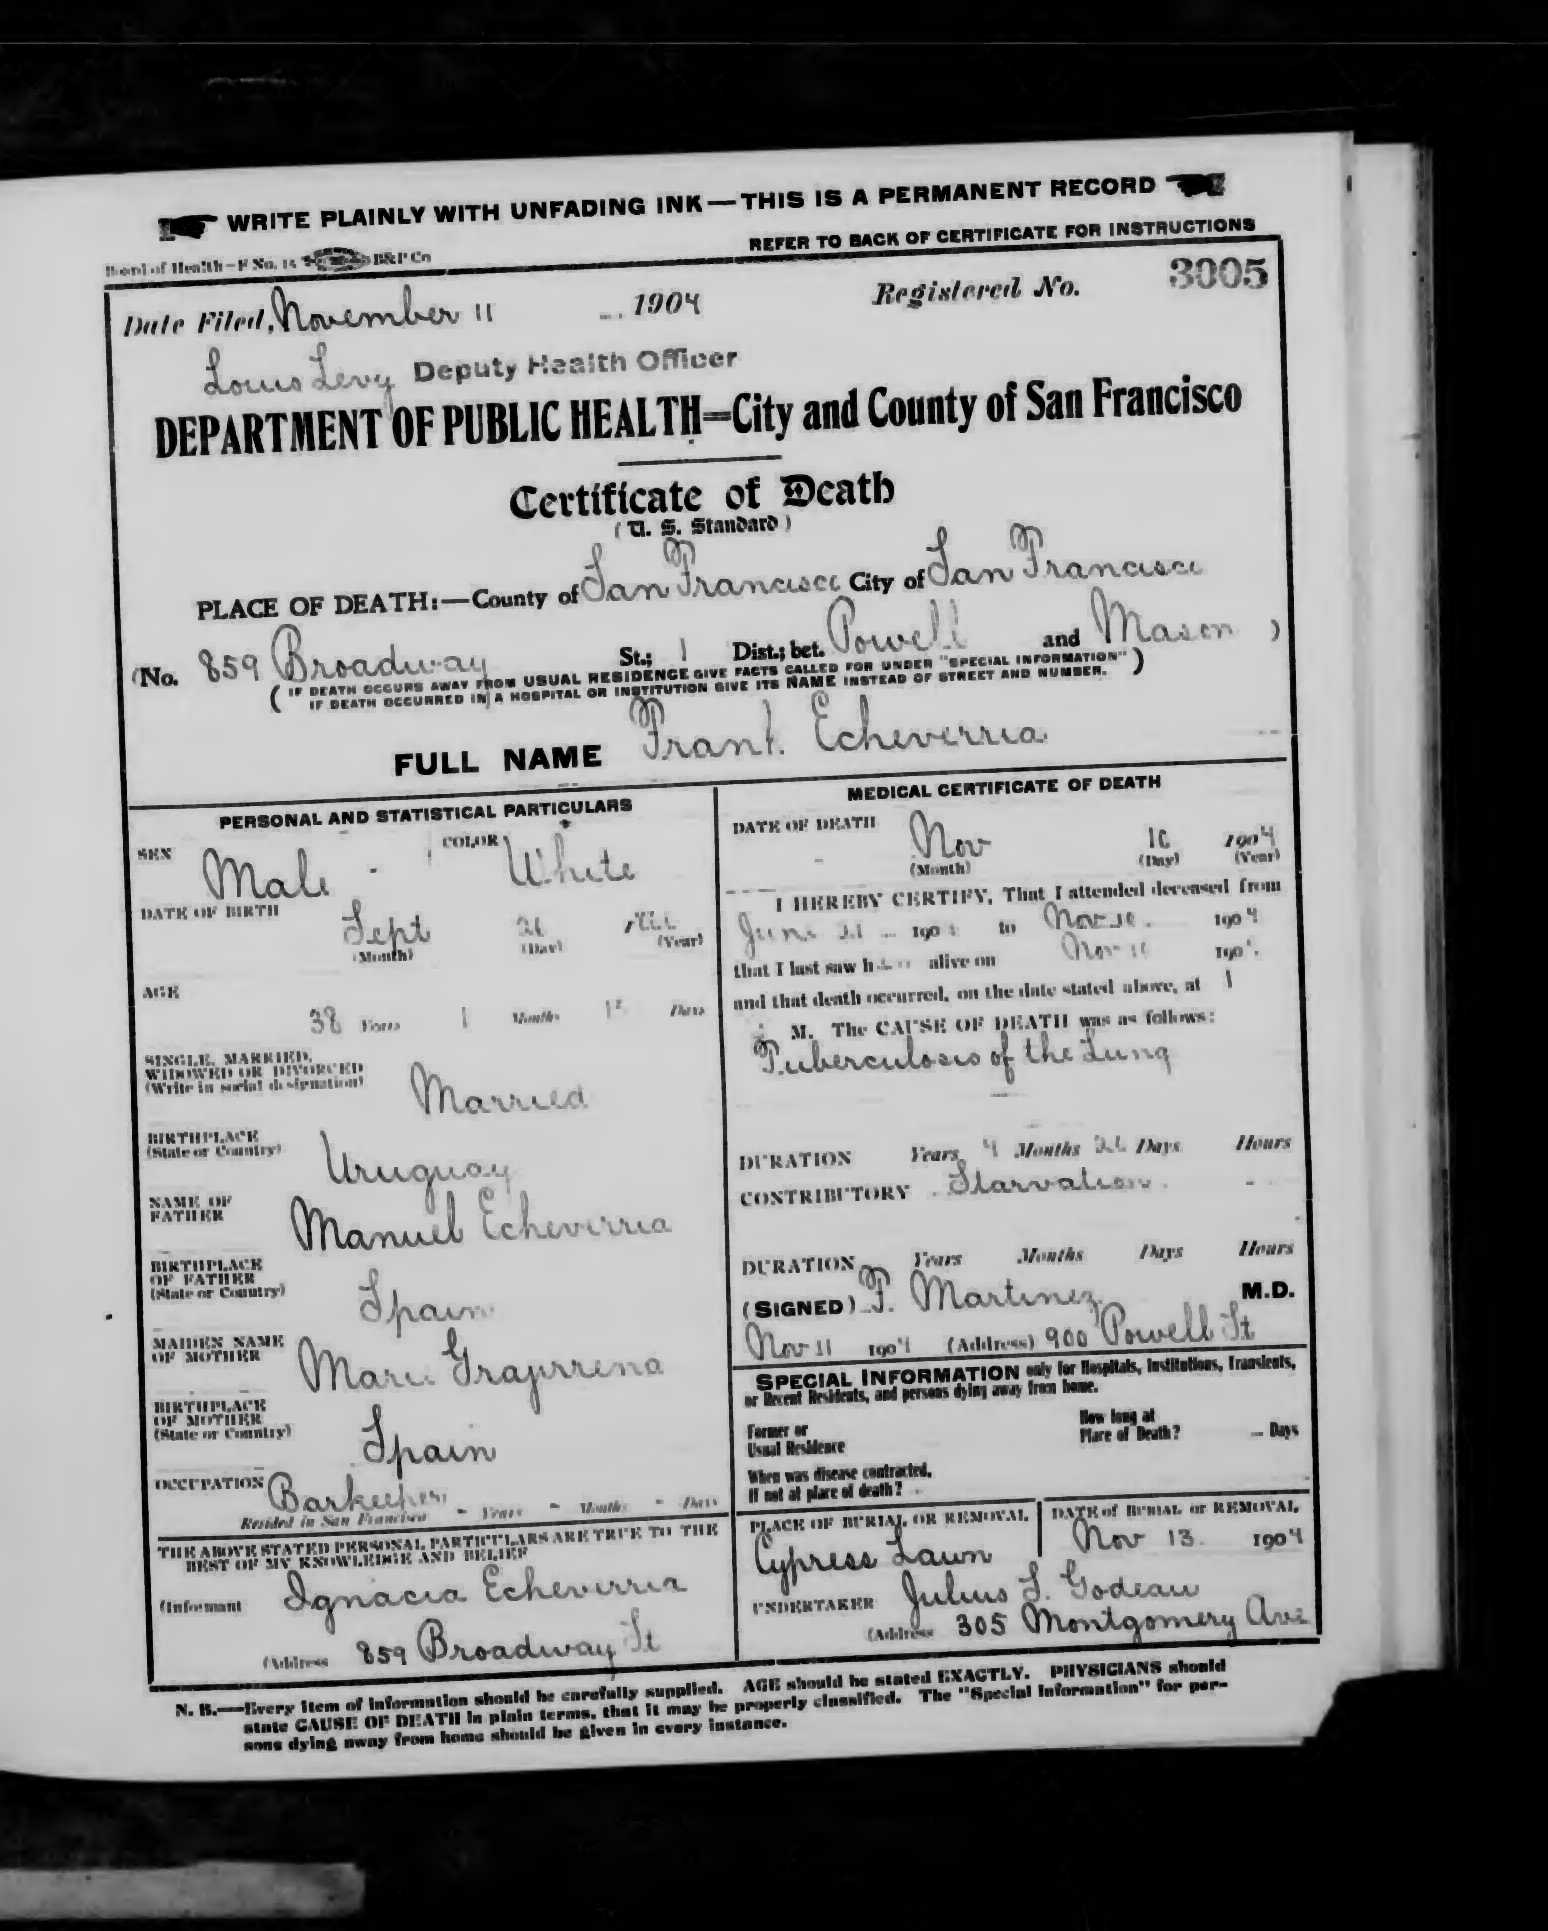 WRITE PLAINLY WITH UNFADING INK—THIS IS A PERMANENT RECORD
Board of Health—F No. 15 B&P Co
REFER TO BACK OF CERTIFICATE FOR INSTRUCTIONS
Date Filed, November 11 1904
Registered No. 3005
Louis Levy Deputy Health Officer
DEPARTMENT OF PUBLIC HEALTH=City and County of San Francisco
Certificate of Death
(U. S. Standard)
PLACE OF DEATH:—County of San Francisco City of San Francisco
(No. 859 Broadway St.; 1 Dist.; bet. Powell and Mason )
( IF DEATH OCCURS AWAY FROM USUAL RESIDENCE GIVE FACTS CALLED FOR UNDER "SPECIAL INFORMATION" )
IF DEATH OCCURRED IN A HOSPITAL OR INSTITUTION GIVE ITS NAME INSTEAD OF STREET AND NUMBER.
FULL NAME Frank Echeverria
PERSONAL AND STATISTICAL PARTICULARS
SEX Male COLOR White
DATE OF BIRTH Sept
(Month) (Day) (Year)
AGE
38 Years 1 Months Days
SINGLE, MARRIED,
WIDOWED OR DIVORCED
(Write in social designation) Married
BIRTHPLACE
(State or Country) Uruguay
NAME OF
FATHER Manuel Echeverria
BIRTHPLACE
OF FATHER
(State or Country) Spain
MAIDEN NAME
OF MOTHER Marie
BIRTHPLACE
OF MOTHER
(State or Country) Spain
OCCUPATION Barkeeper
Resided in San Francisco - Years - Months - Days
THE ABOVE STATED PERSONAL PARTICULARS ARE TRUE TO THE
BEST OF MY KNOWLEDGE AND BELIEF
(Informant Ignacia Echeverria
(Address 859 Broadway St
MEDICAL CERTIFICATE OF DEATH
DATE OF DEATH Nov 10 1904
(Month) (Day) (Year)
I HEREBY CERTIFY, That I attended deceased from
June 190 to Nov 10. 1904
that I last saw h alive on Nov 10 190
and that death occurred, on the date stated above, at 1
M. The CAUSE OF DEATH was as follows:
Tuberculosis of the Lung
DURATION Years 4 Months Days Hours
CONTRIBUTORY Starvation
DURATION Years Months Days Hours
(SIGNED) F. Martinez M.D.
Nov 11 1904 (Address) 900 Powell St
SPECIAL INFORMATION only for Hospitals, Institutions, Transients,
or Recent Residents, and persons dying away from home.
Former or
Usual Residence
How long at
Place of Death? Days
When was disease contracted,
If not at place of death?
PLACE OF BURIAL OR REMOVAL
Cypress Lawn
DATE of BURIAL or REMOVAL
Nov 13. 1904
UNDERTAKER Julius S. Godeau
(Address 305 Montgomery Ave
N. B.—Every item of information should be carefully supplied. AGE should be stated EXACTLY. PHYSICIANS should
state CAUSE OF DEATH in plain terms, that it may be properly classified. The "Special Information" for per-
sons dying away from home should be given in every instance.